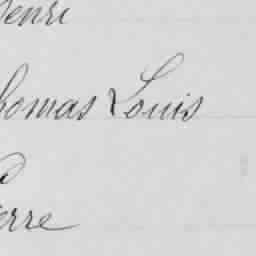 Henri
homas Louis
erre